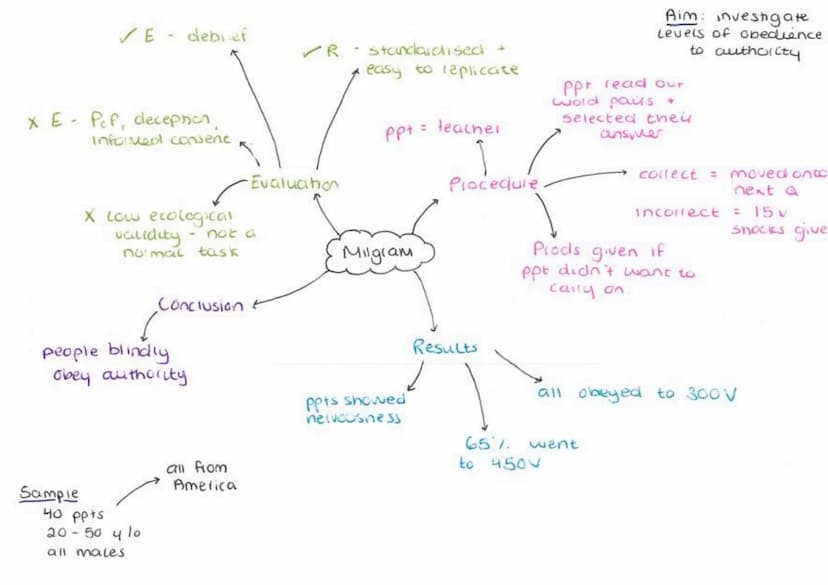 Aim: investigate
levels of obedience
to authority
✓ E - debrief
✓ R - standardised +
easy to replicate
X E - PfP, deception,
informed consent
X Low ecological
validity - not a
normal task
Evaluation
Milgram
Procedure
ppt = teacher
ppt read our
word pairs +
selected their
answer
correct = moved onto
next Q
incorrect = 15v
shocks give
Prods given if
ppt didn't want to
carry on
Conclusion
people blindly
obey authority
Results
ppts showed
nervousness
65% went
to 450V
all obeyed to 300V
Sample
40 ppts
20-50 y/o
all males
all from
America